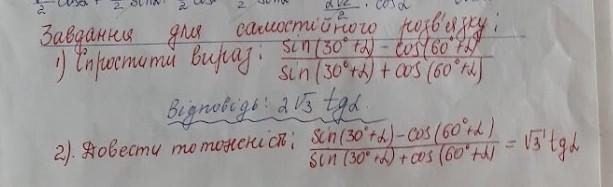 Завдання для самостійного розв'язку:
1) Спростити вираз: (sin(30°+α) - cos(60°+α)) / (sin(30°+α) + cos(60°+α))
Відповідь: 2√3 tgα.
2). Довести тотожність: (sin(30°+α) - cos(60°+α)) / (sin(30°+α) + cos(60°+α)) = √3 tgα